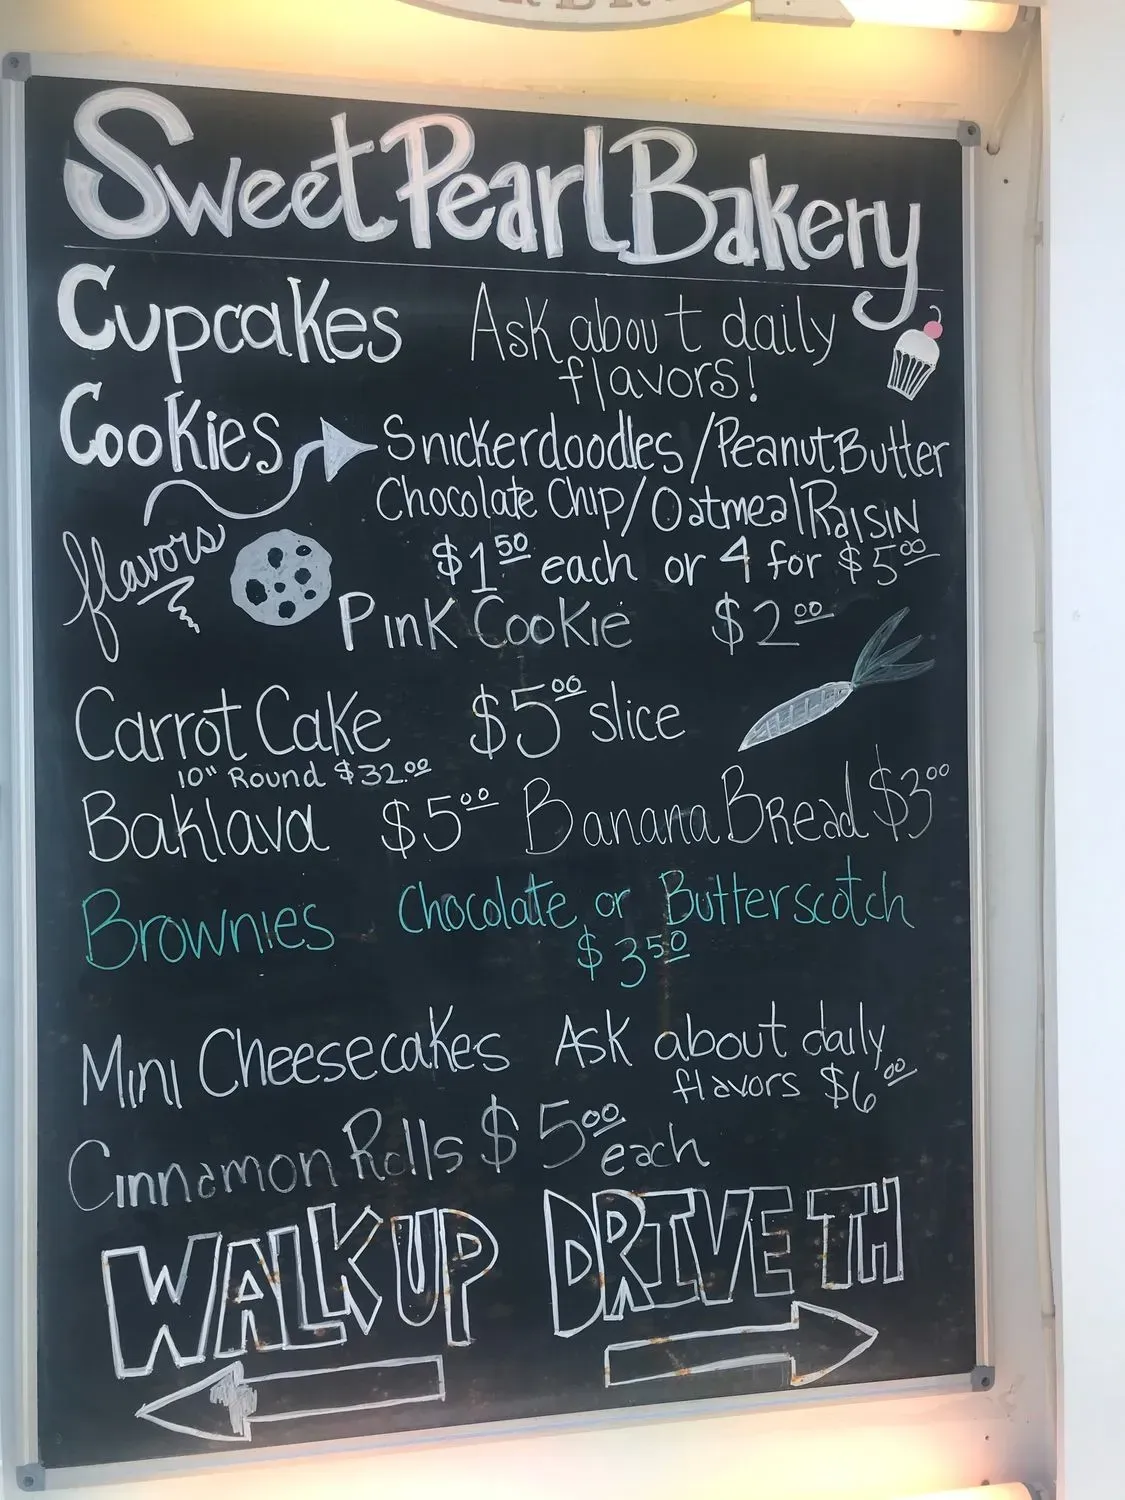 Sweet Pearl Bakery
Cupcakes Ask about daily
flavors!
Cookies Snickerdoodles / Peanut Butter
Chocolate Chip / Oatmeal Raisin
flavors $1.50 each or 4 for $5.00
Pink Cookie $2.00
Carrot Cake $5.00 slice
10" Round $32.00
Baklava $5.00 Banana Bread $3.00
Brownies Chocolate or Butterscotch
$3.50
Mini Cheesecakes Ask about daily
flavors $6.00
Cinnamon Rolls $5.00 each
WALK UP DRIVE TH